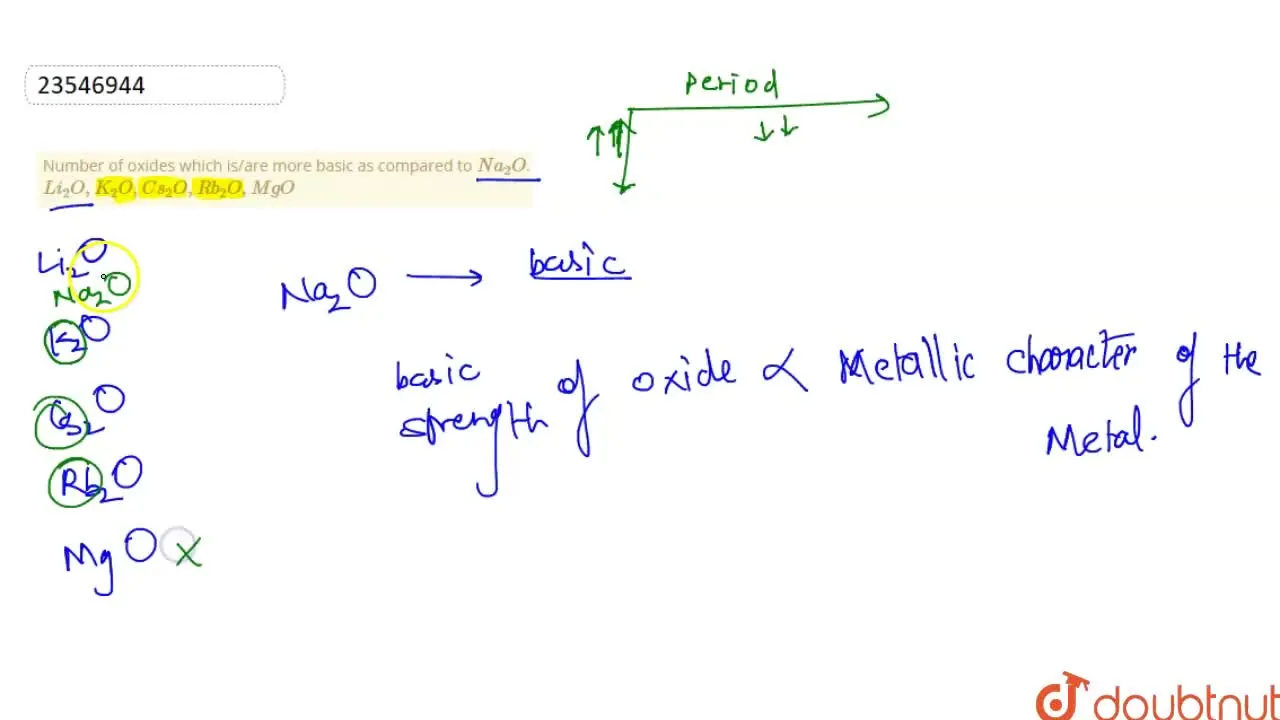 23546944
Period
Number of oxides which is/are more basic as compared to Na₂O.
Li₂O, K₂O, Cs₂O, Rb₂O, MgO
Li₂O
Na₂O
K₂O
Cs₂O
Rb₂O
MgO X
Na₂O → basic
basic strength of oxide ∝ Metallic character of the Metal.
doubtnut